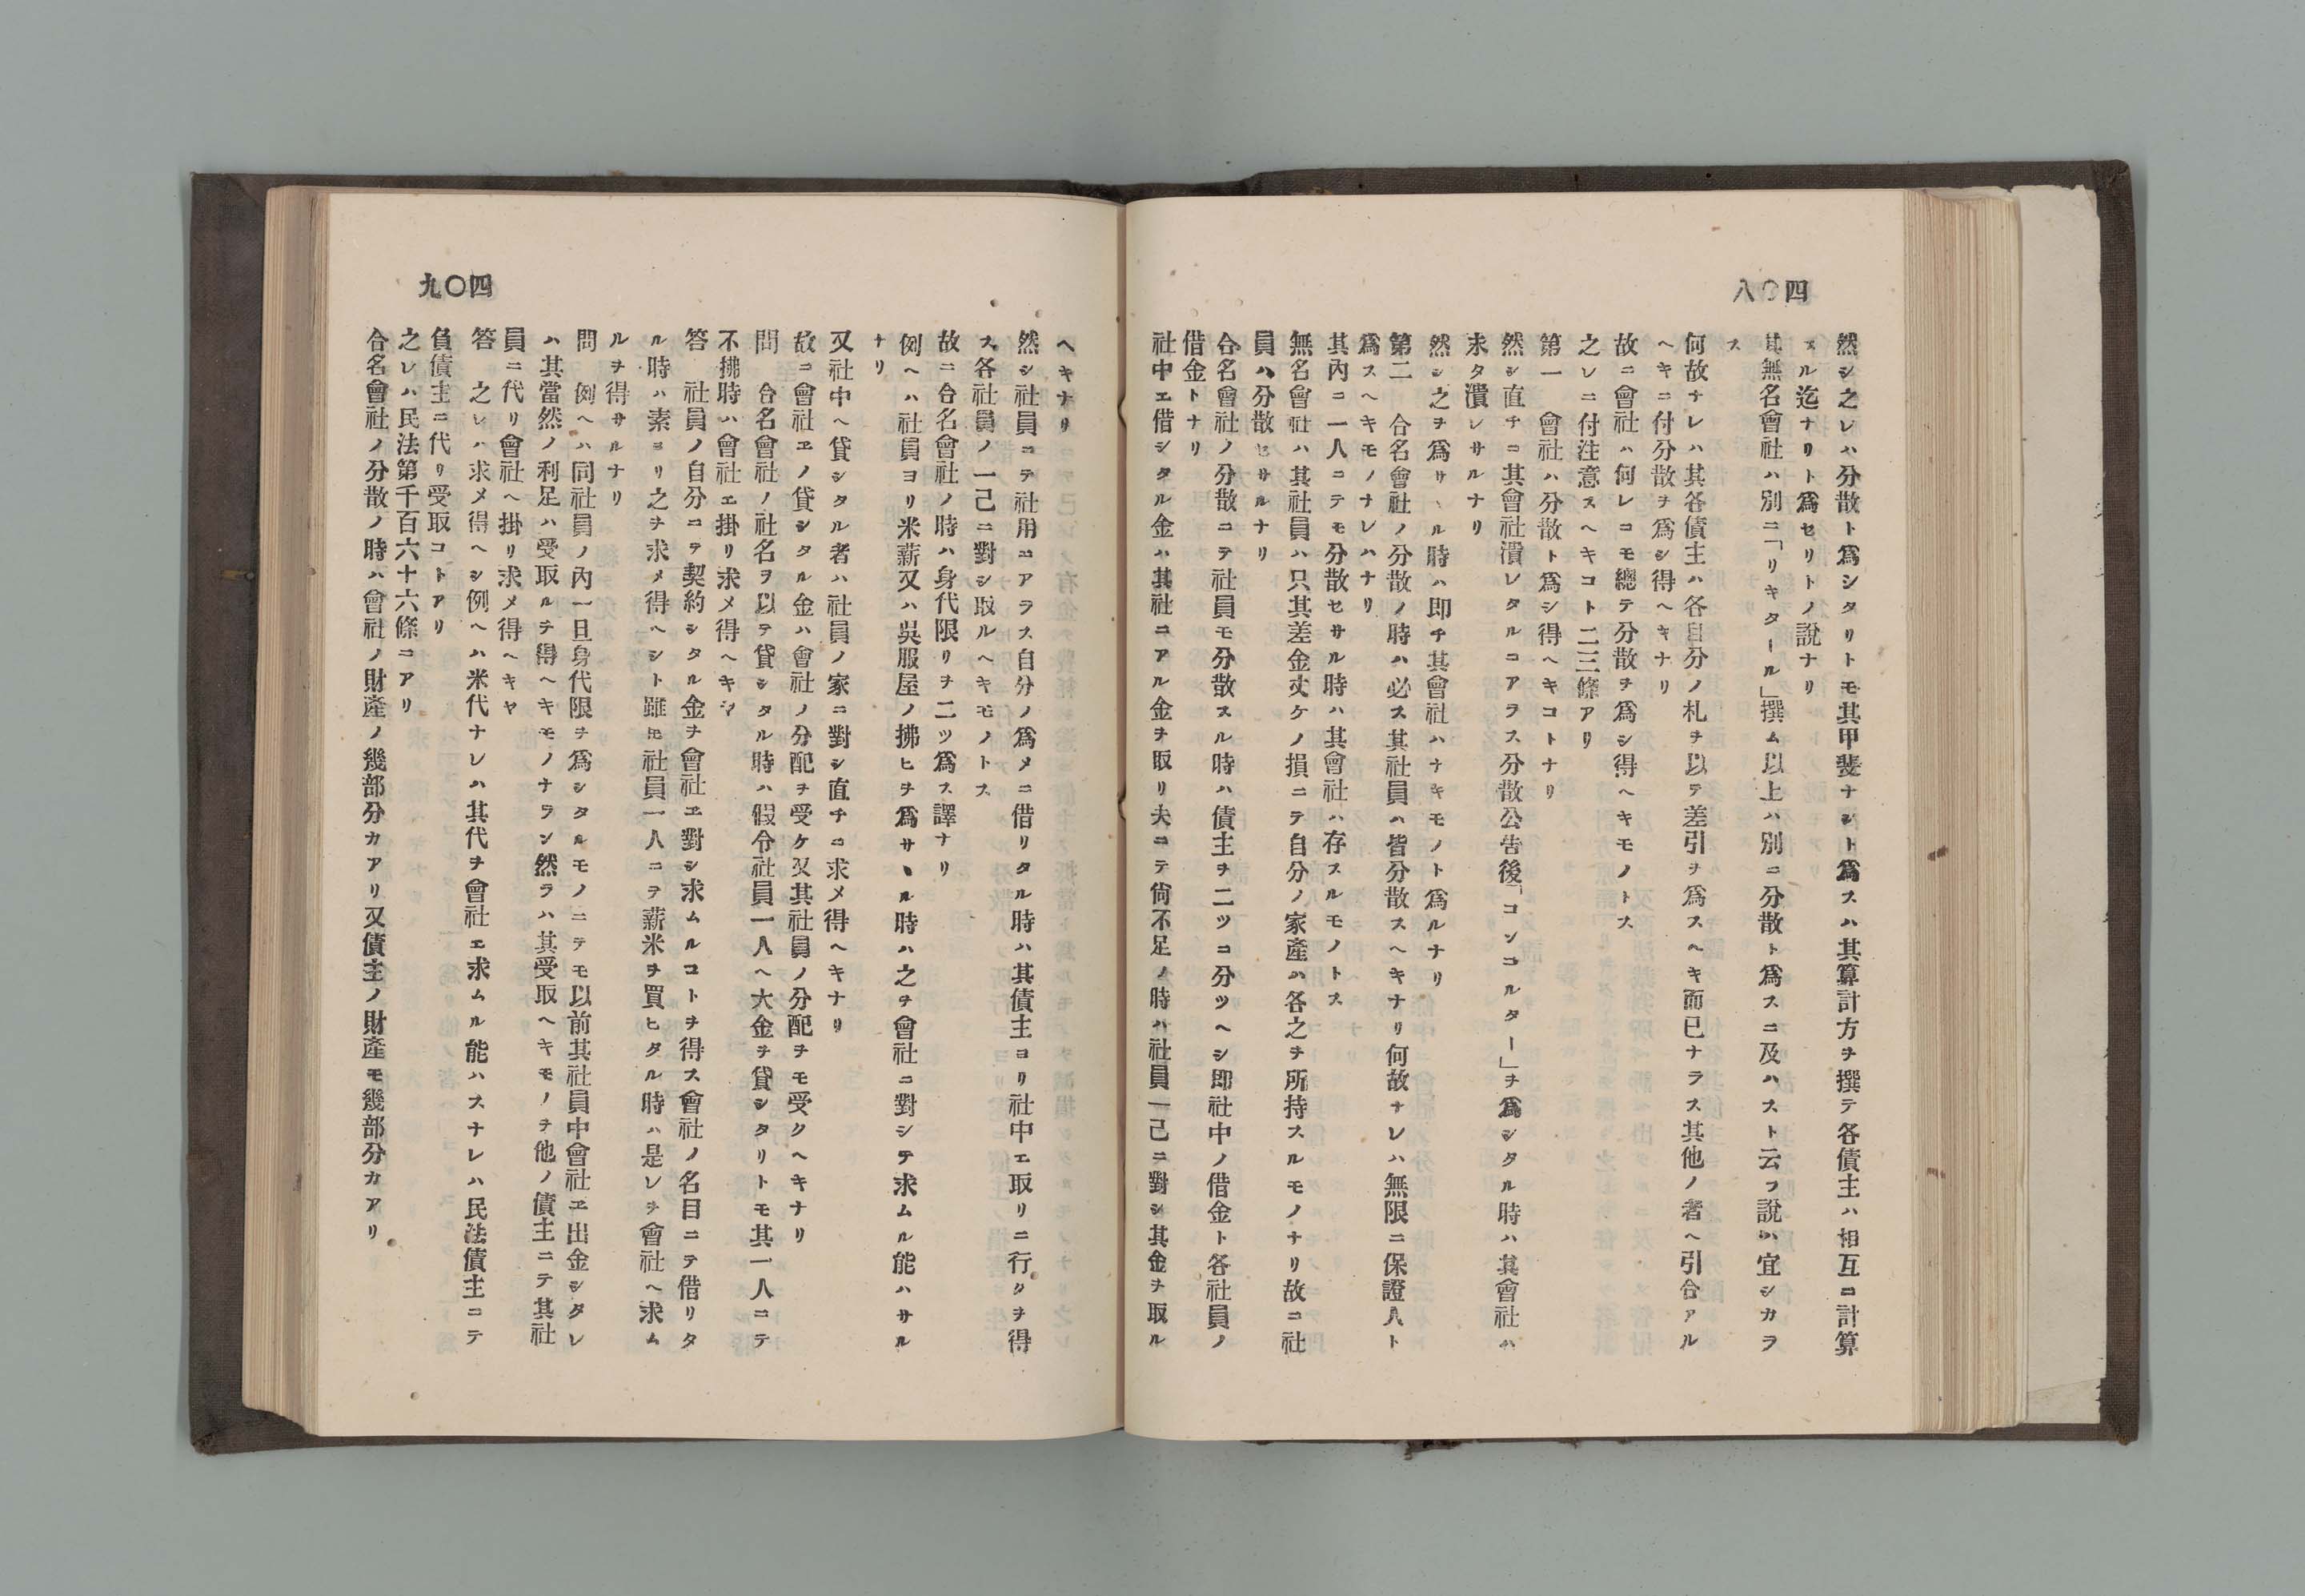 四〇八
然シ之レハ分散ト爲シタリトモ其甲斐ナシト爲スハ其算計方ヲ撰テ各債主ハ相互ニ計算
スル迄ナリト爲セリトノ說ナリ
其無名會社ハ別ニ「リキタール」撰ム以上ハ別ニ分散ト爲スニ及ハスト云フ說ハ宜シカラ
ス
何故ナレハ其各債主ハ各自分ノ札ヲ以テ差引ヲ爲スヘキ而已ナラス其他ノ者ヘ引合アル
ヘキニ付分散ヲ爲シ得ヘキナリ
故ニ會社ハ何レニモ總テ分散ヲ爲シ得ヘキモノトス
之レニ付注意スヘキコト二三條アリ
第一　會社ハ分散ト爲シ得ヘキコトナリ
然シ直チニ其會社潰レタルニアラス分散公告後「コンコルダー」ヲ爲シタル時ハ其會社ハ
末タ潰レサルナリ
然シ之ヲ爲サヽル時ハ即チ其會社ハナキモノト爲ルナリ
第二　合名會社ノ分散ノ時ハ必ス其社員ハ皆分散スヘキナリ何故ナレハ無限ニ保證人ト
爲スヘキモノナレハナリ
其內ニ一人ニテモ分散セサル時ハ其會社ハ存スルモノトス
無名會社ハ其社員ハ只其差金丈ケノ損ニテ自分ノ家產ハ各之ヲ所持スルモノナリ故ニ社
員ハ分散セサルナリ
合名會社ノ分散ニテ社員モ分散スル時ハ債主ヲ二ツニ分ツヘシ即社中ノ借金ト各社員ノ
借金トナリ
社中エ借シタル金ハ其社ニアル金ヲ取リ夫ニテ尙不足ノ時ハ社員一己ニ對シ其金ヲ取ル
四〇九
ヘキナリ
然シ社員ニテ社用ニアラス自分ノ爲メニ借リタル時ハ其債主ヨリ社中エ取リニ行クヲ得
ス各社員ノ一己ニ對シ取ルヘキモノトス
故ニ合名會社ノ時ハ身代限リヲ二ツ爲ス譯ナリ
例ヘハ社員ヨリ米薪又ハ吳服屋ノ拂ヒヲ爲サヽル時ハ之ヲ會社ニ對シテ求ムル能ハサル
ナリ
又社中ヘ貸シタル者ハ社員ノ家ニ對シ直チニ求メ得ヘキナリ
故ニ會社ヱノ貸シタル金ハ會社ノ分配ヲ受ケ又其社員ノ分配ヲモ受クヘキナリ
問　合名會社ノ社名ヲ以テ貸シタル時ハ假令社員一人ヘ大金ヲ貸シタリトモ其一人ニテ
不拂時ハ會社エ掛リ求メ得ヘキヤ
答　社員ノ自分ニテ契約シタル金ヲ會社ヱ對シ求ムルコトヲ得ス會社ノ名目ニテ借リタ
ル時ハ素ヨリ之ヲ求メ得ヘシト雖モ社員一人ニテ薪米ヲ買ヒタル時ハ是レヲ會社ヘ求ム
ルヲ得サルナリ
問　例ヘハ同社員ノ內一旦身代限ヲ爲シタルモノニテモ以前其社員中會社ヱ出金シタレ
ハ其當然ノ利足ハ受取ルヲ得ヘキモノナラン然ラハ其受取ヘキモノヲ他ノ債主ニテ其社
員ニ代リ會社ヘ掛リ求メ得ヘキヤ
答　之レハ求メ得ヘシ例ヘハ米代ナレハ其代ヲ會社エ求ムル能ハスナレハ民法債主ニテ
負債主ニ代リ受取コトアリ
之レハ民法第千百六十六條ニアリ
合名會社ノ分散ノ時ハ會社ノ財產ノ幾部分カアリ又債主ノ財產モ幾部分カアリ